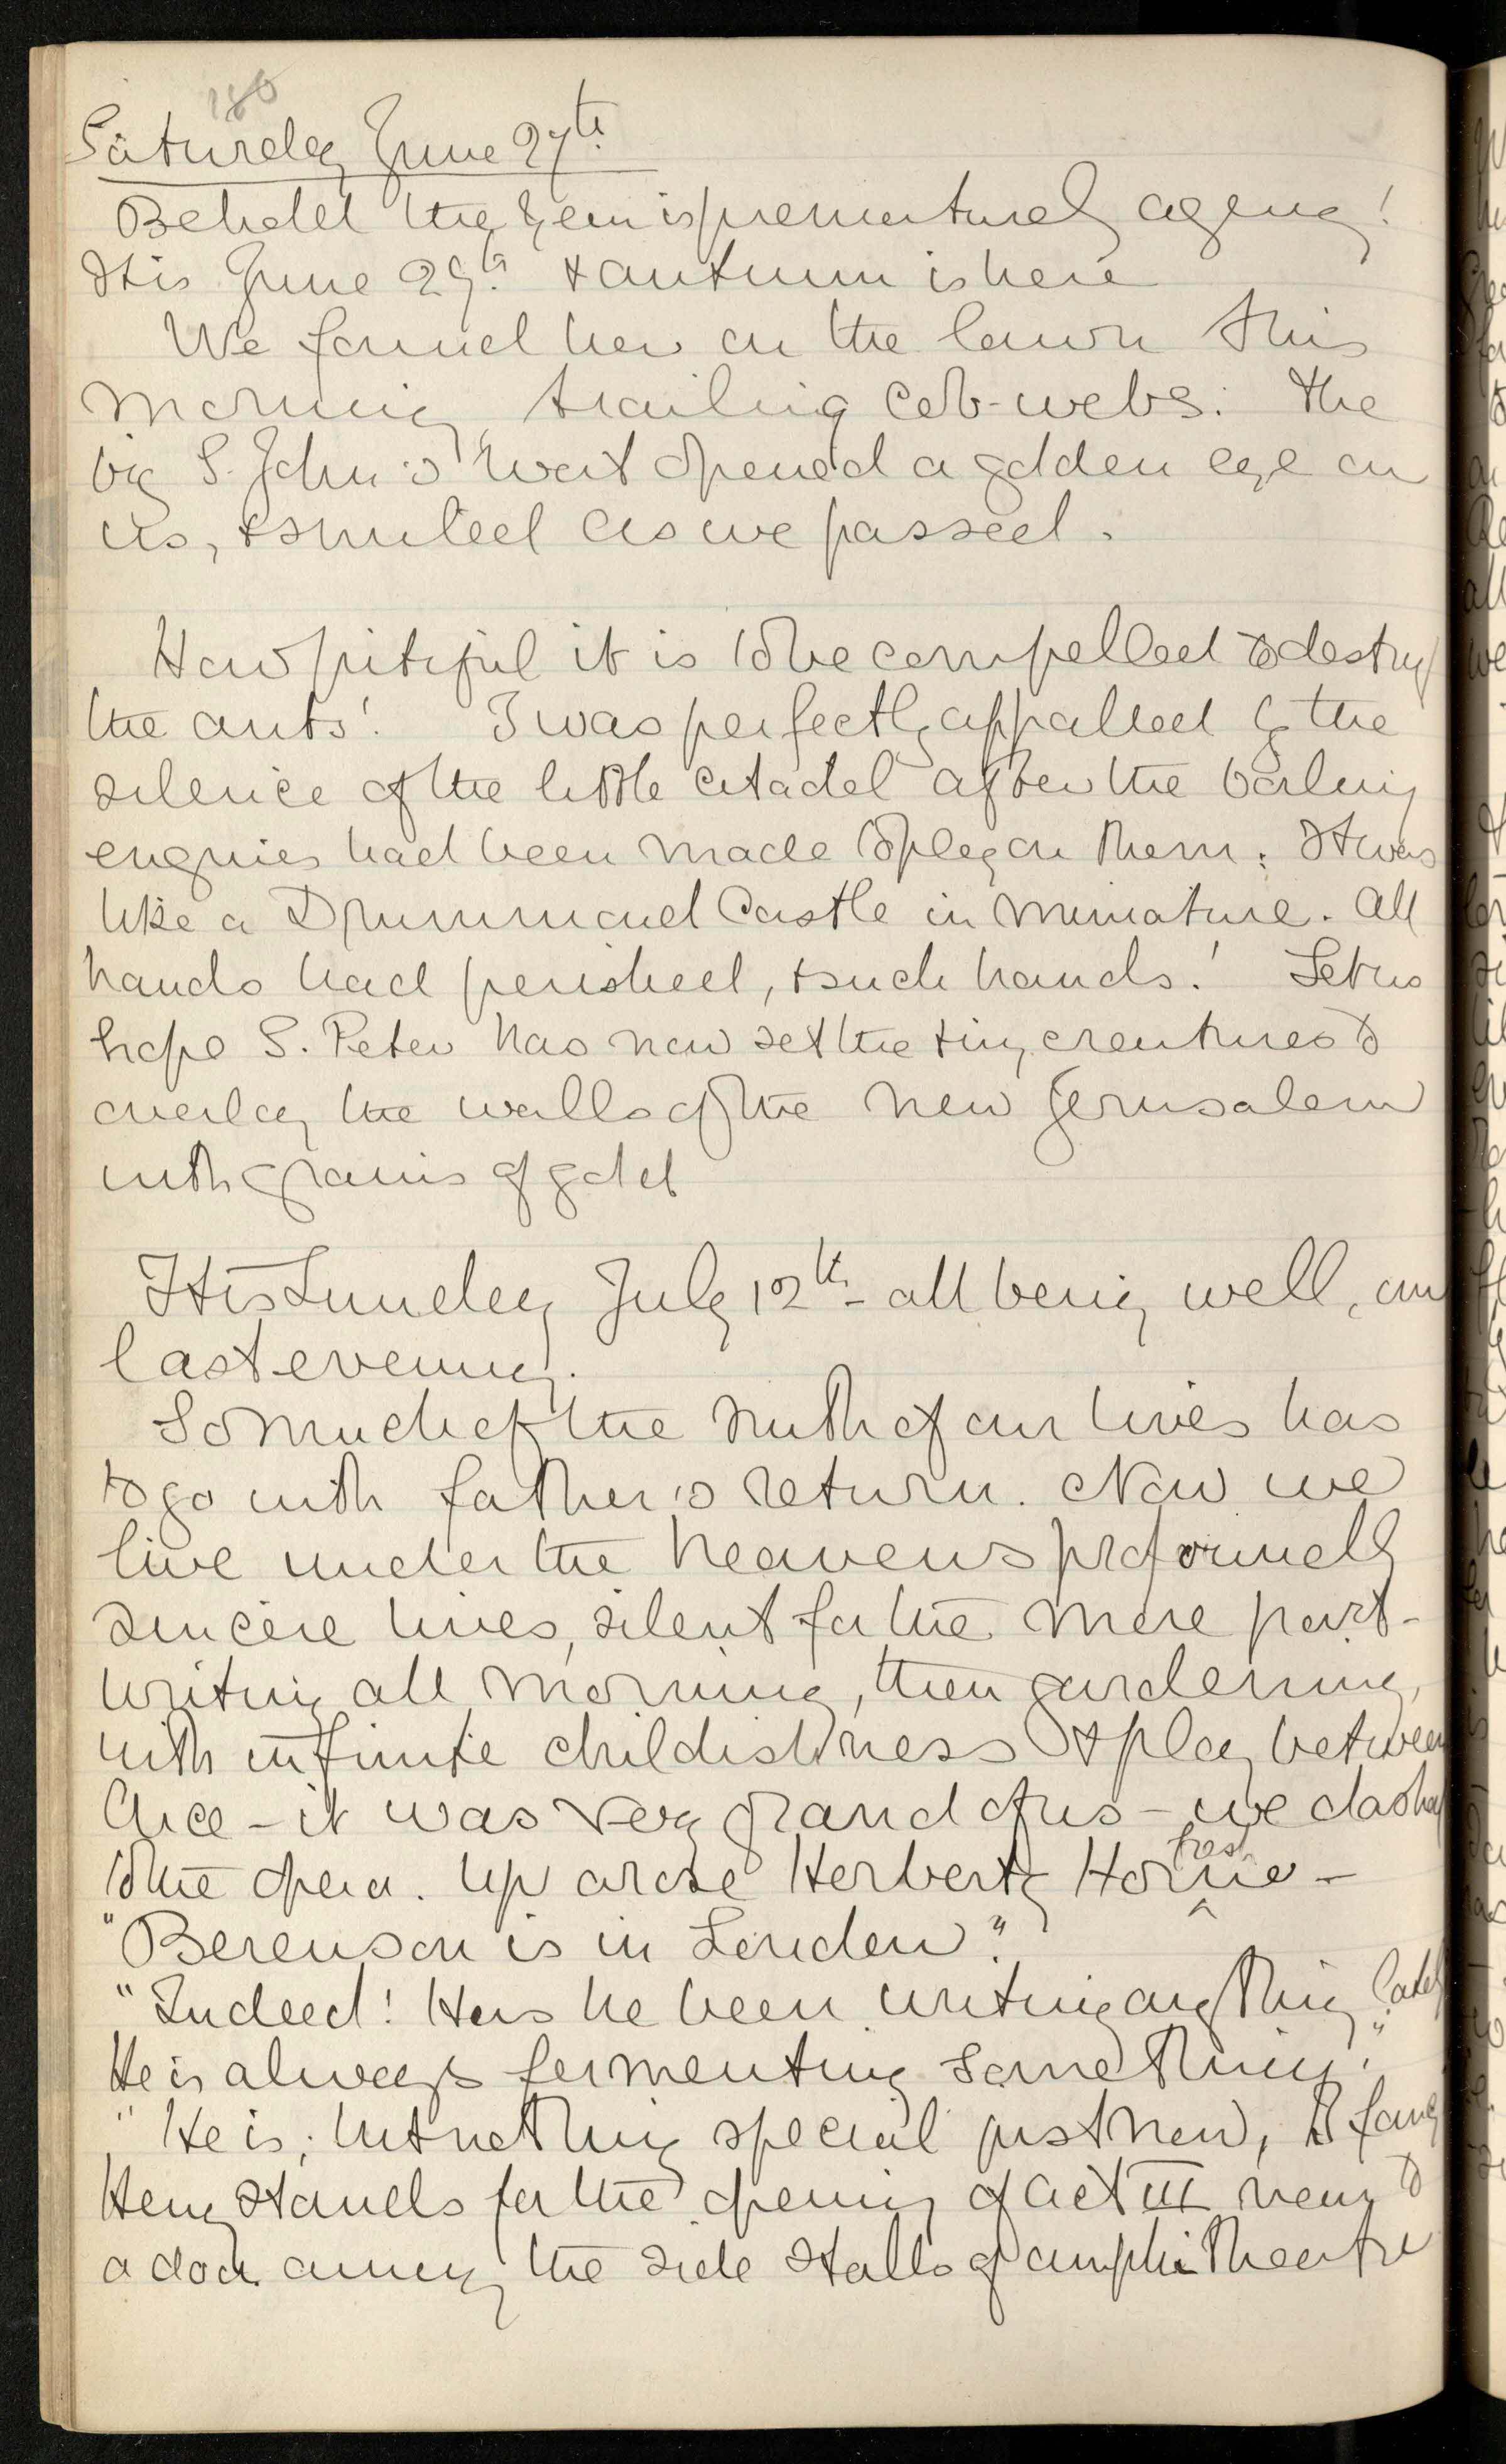 180
Saturday June 27th
Behold the year is prematurely ageing!
It is June 29th & autumn is here
We found her on the lawn this
morning, trailing cob-webs: the
big S. John's Wort opened a golden eye on
us, & smiled as we passed.
How pitiful it is to be compelled to destroy
the ants! I was perfectly appalled by the
silence of the little citadel after the boiling
engines had been made to play on them: It was
like a Drummond Castle in miniature. All
hands had perished, & such hands! Let us
hope S. Peter has now set the tiny creatures to
overlay the walls of the new Jerusalem
with grains of gold
It is Sunday July 12th - all being well, our
last evening.
So much of the truth of our lives has
to go with father's return. Now we
live under the heavens profoundly
sincere lives, silent for the more part -
writing all morning, then gardening,
with infinite childishness & play between
Once - it was very grand of us - we dashed
to the opera. Up arose Herbert Horne fresh -
"Berenson is in London".
"Indeed! Has he been writing anything lately
He is always fermenting something."
"He is; but nothing special just now, I fancy
Heny stands for the opening of Act III near to
a door among the side stalls of amphitheatre